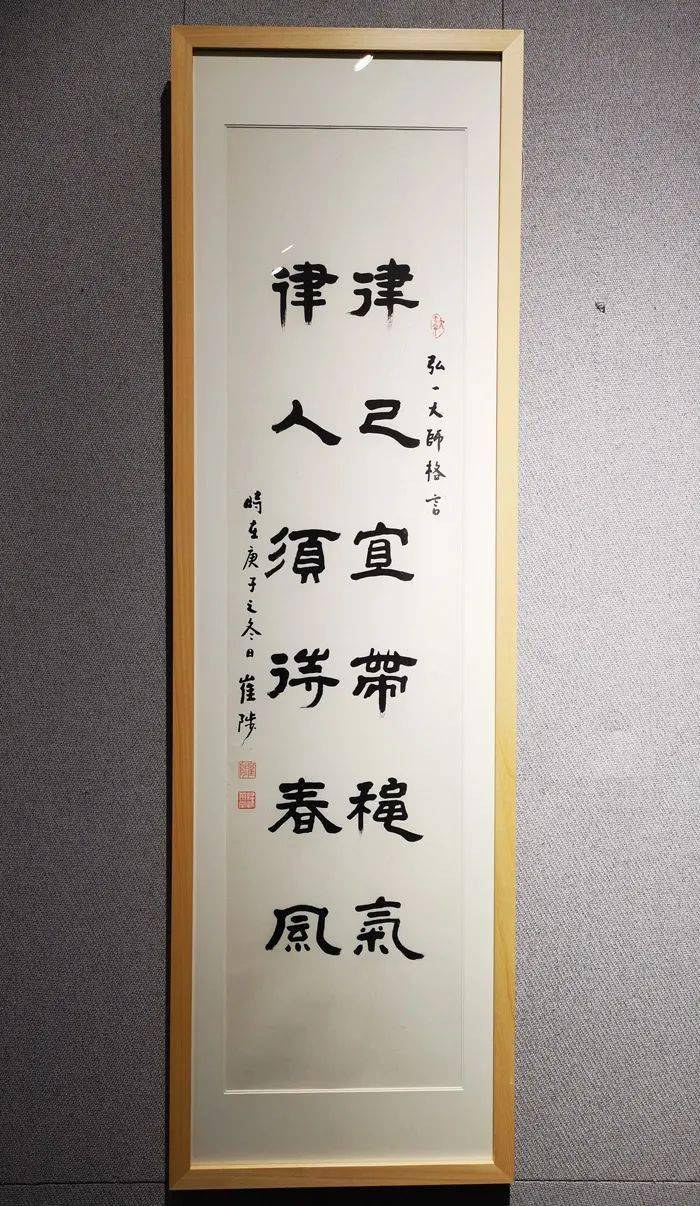 弘一大師格言
律己宜帶穐氣
律人須待春風
時在庚子之冬日崔陟